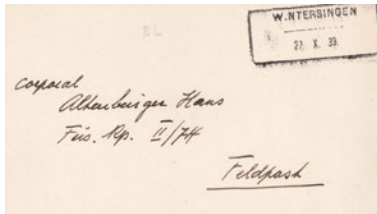 BL
W.NTERSINGEN
27. X. 39.
Corporal
Altenburger Hans
Füs. Kp. II/74
Feldpost